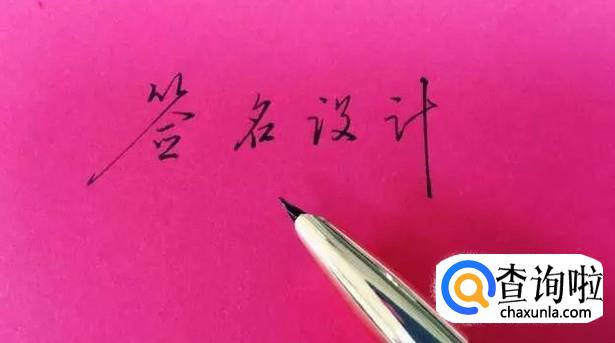 签名设计
查询啦
chaxunla.com